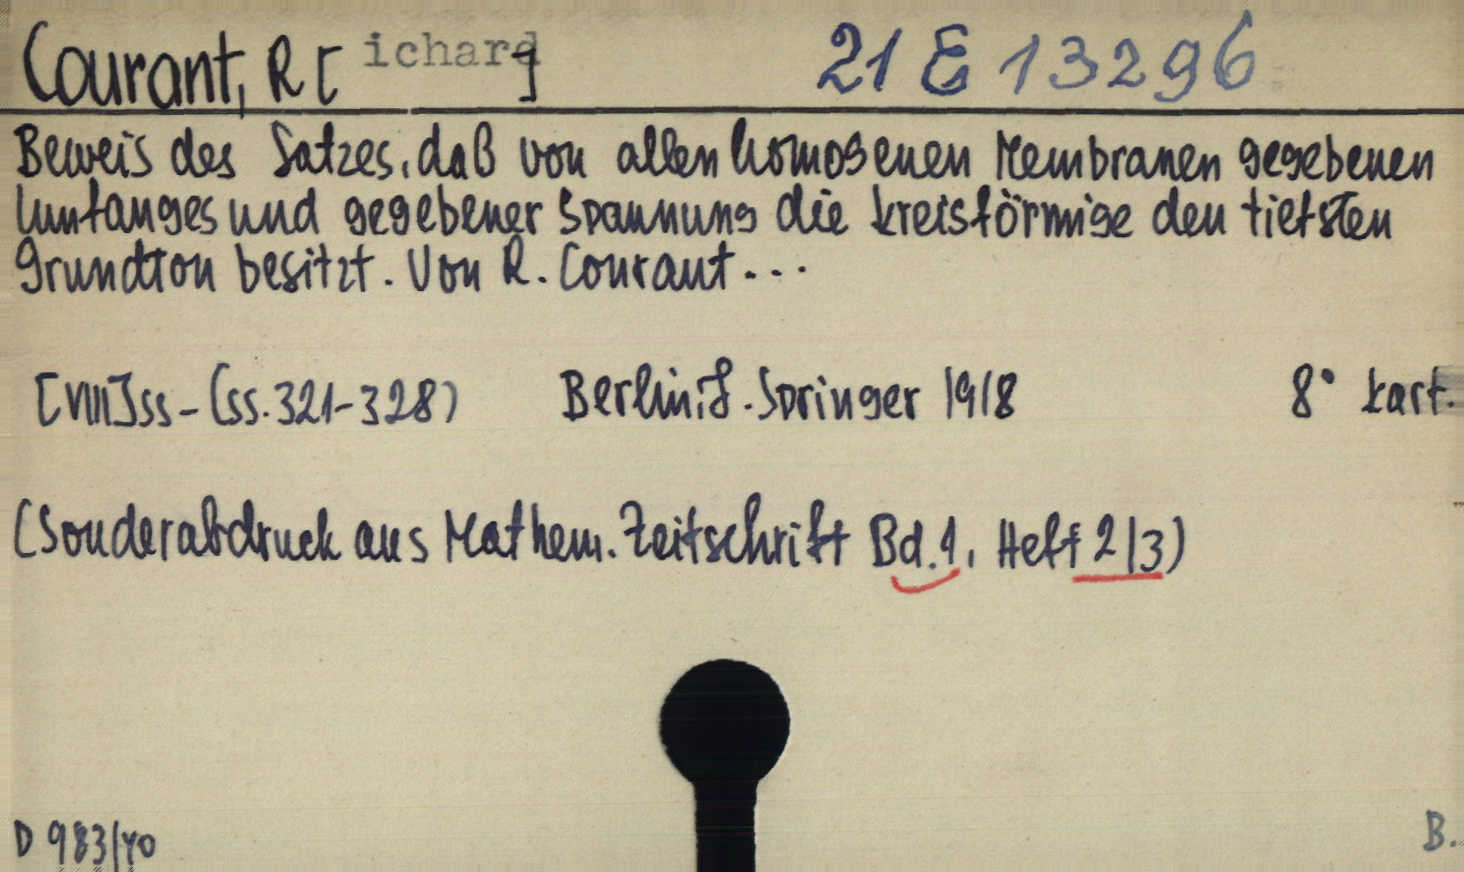 Courant, R [ichard] 21 E 13296
Beweis des Satzes, daß von allen homogenen Membranen gegebenen
Umfanges und gegebener Spannung die kreisförmige den tiefsten
Grundton besitzt. Von R. Courant...
[VIII]SS - (SS. 321-328) Berlin: J. Springer 1918 8° kart.
(Sonderabdruck aus Mathem. Zeitschrift Bd. 1, Heft 2/3)
D 983/40 B.